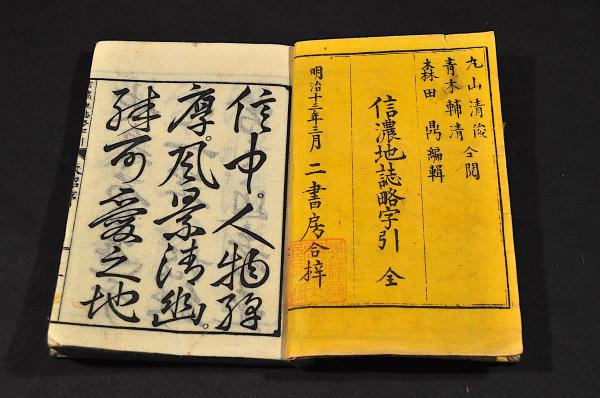 丸山清俊
青木輔清 仝閲
森田 㒵編輯
信濃地誌略字引 全
明治十三年三月 二書房合梓
信中。人物淳
厚。風景清幽。
殊可愛之地